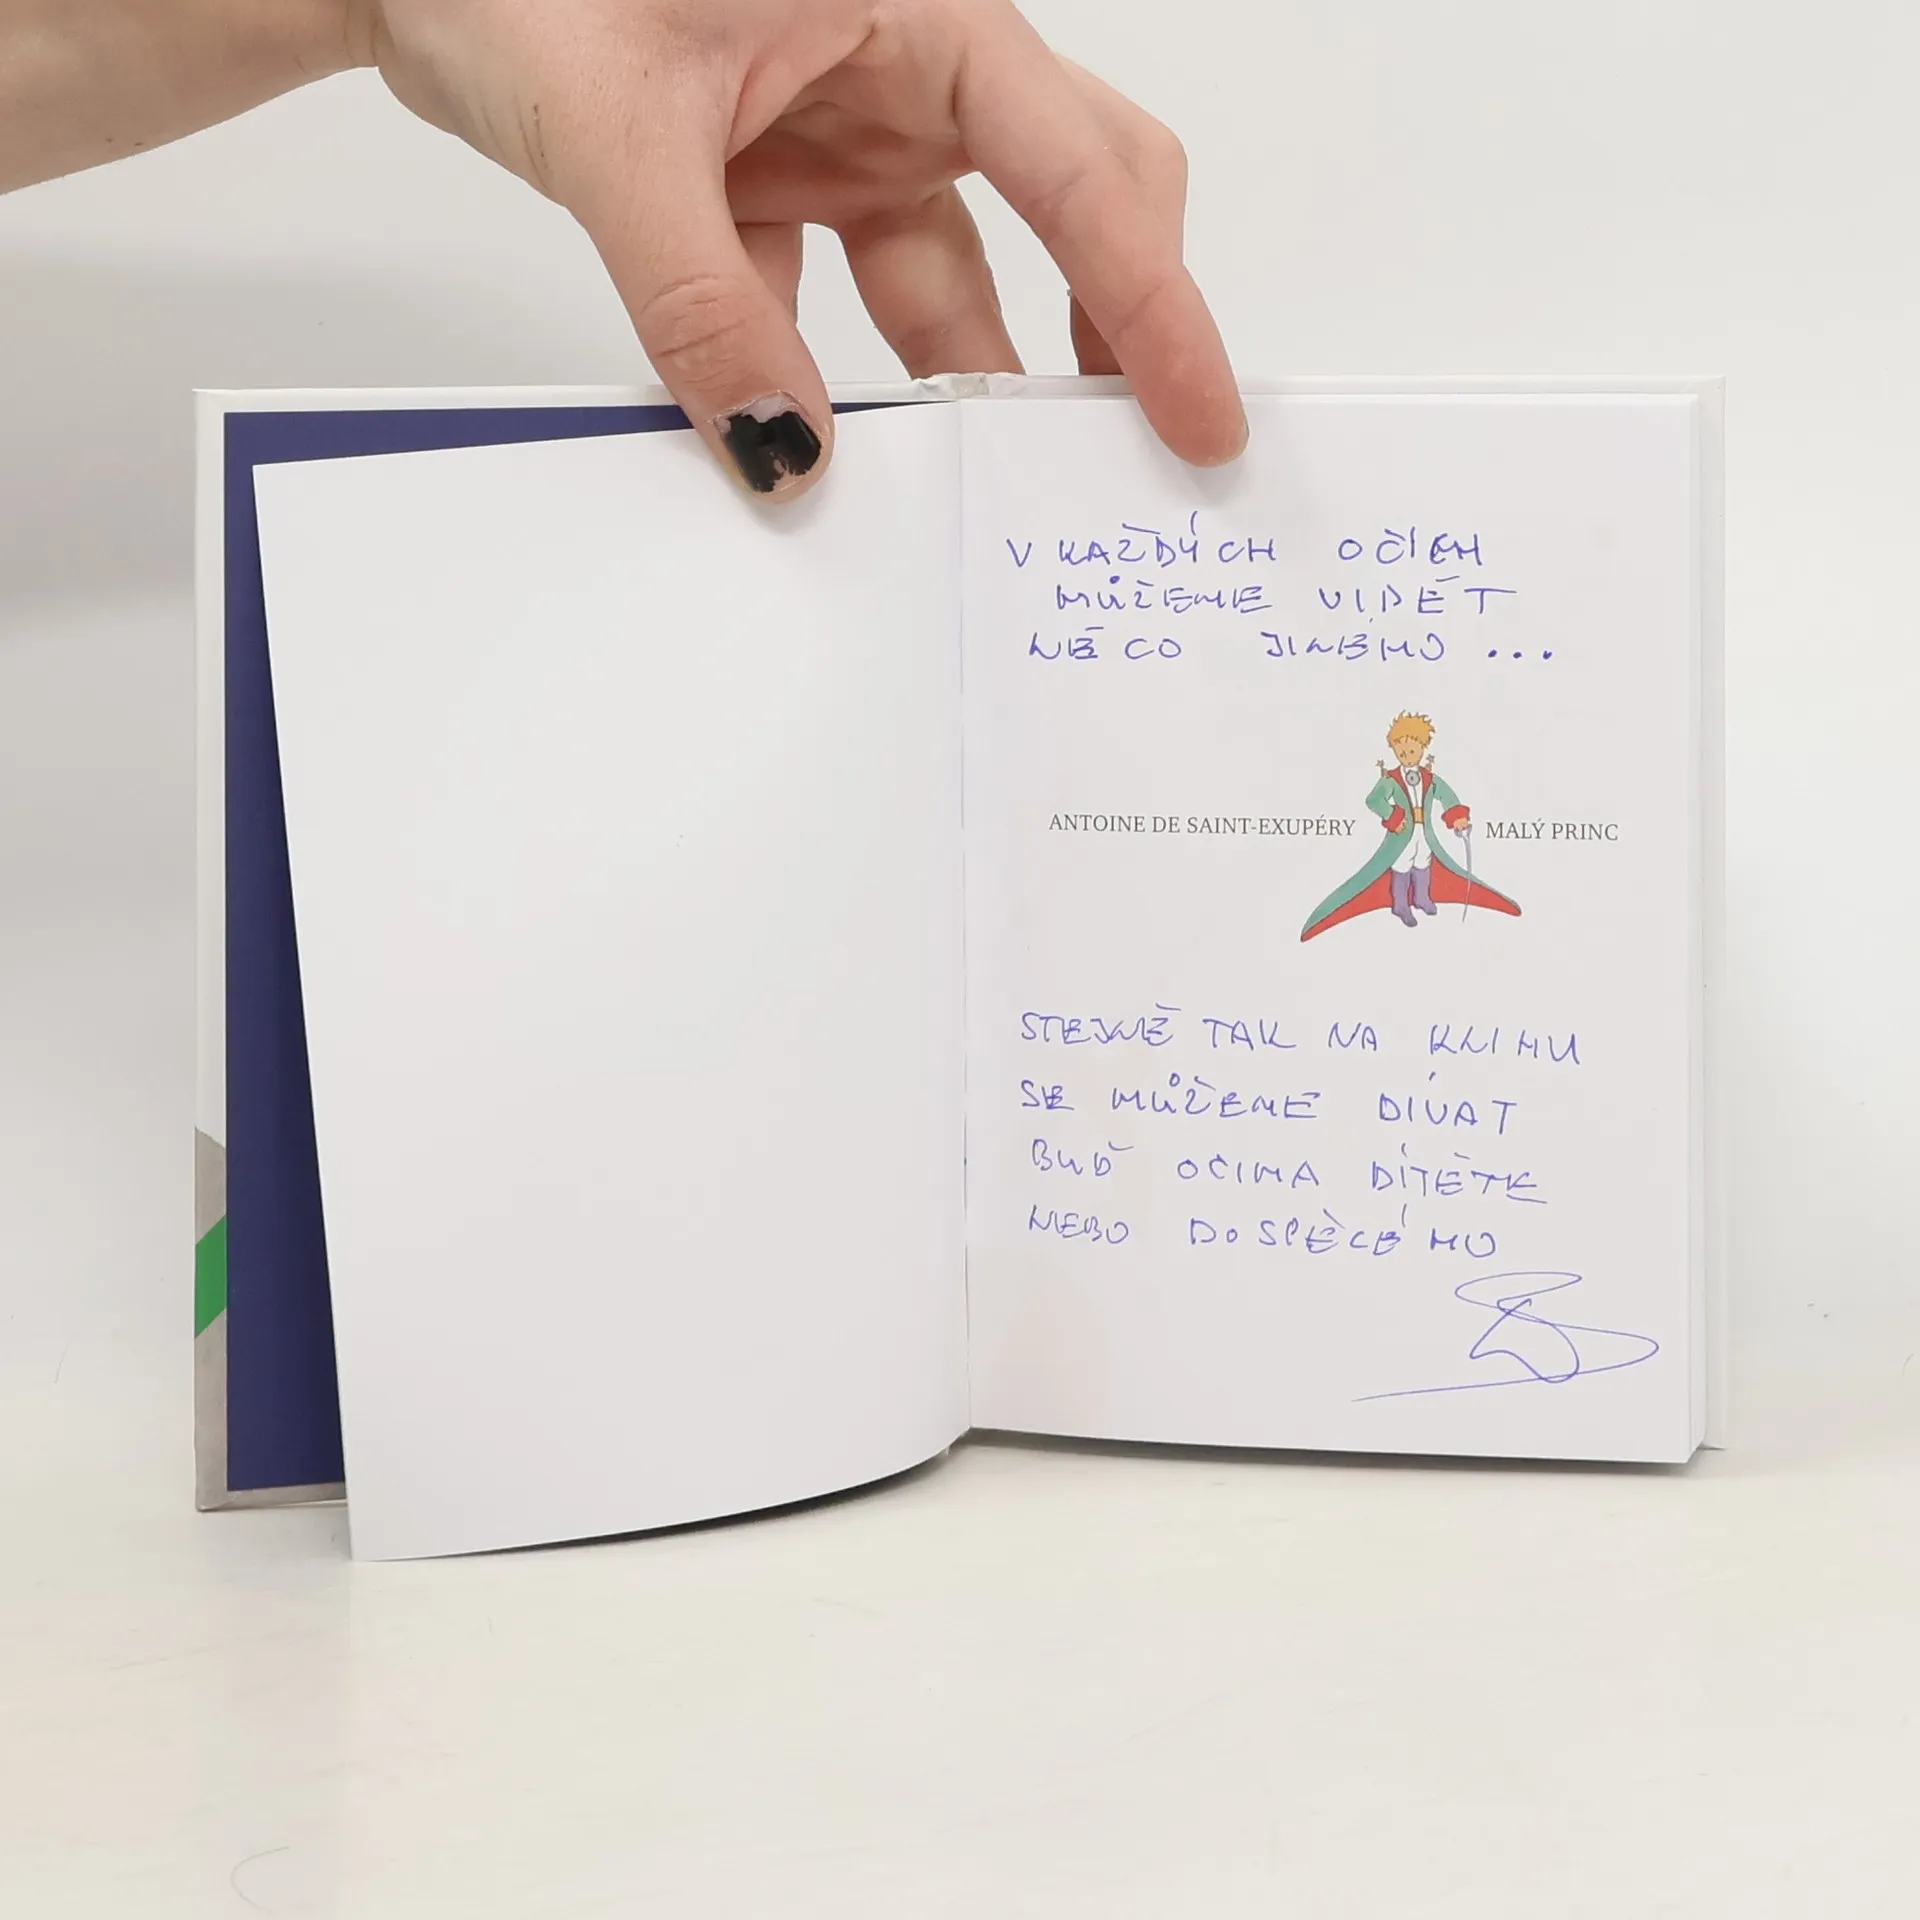 V KAŽDÝCH OČÍCH
MŮŽEME VIDĚT
NĚCO JINÉHO ...
ANTOINE DE SAINT-EXUPÉRY MALÝ PRINC
STEJNĚ TAK NA KNIHU
SE MŮŽEME DÍVAT
BUĎ OČIMA DÍTĚTE
NEBO DOSPĚLÉHO